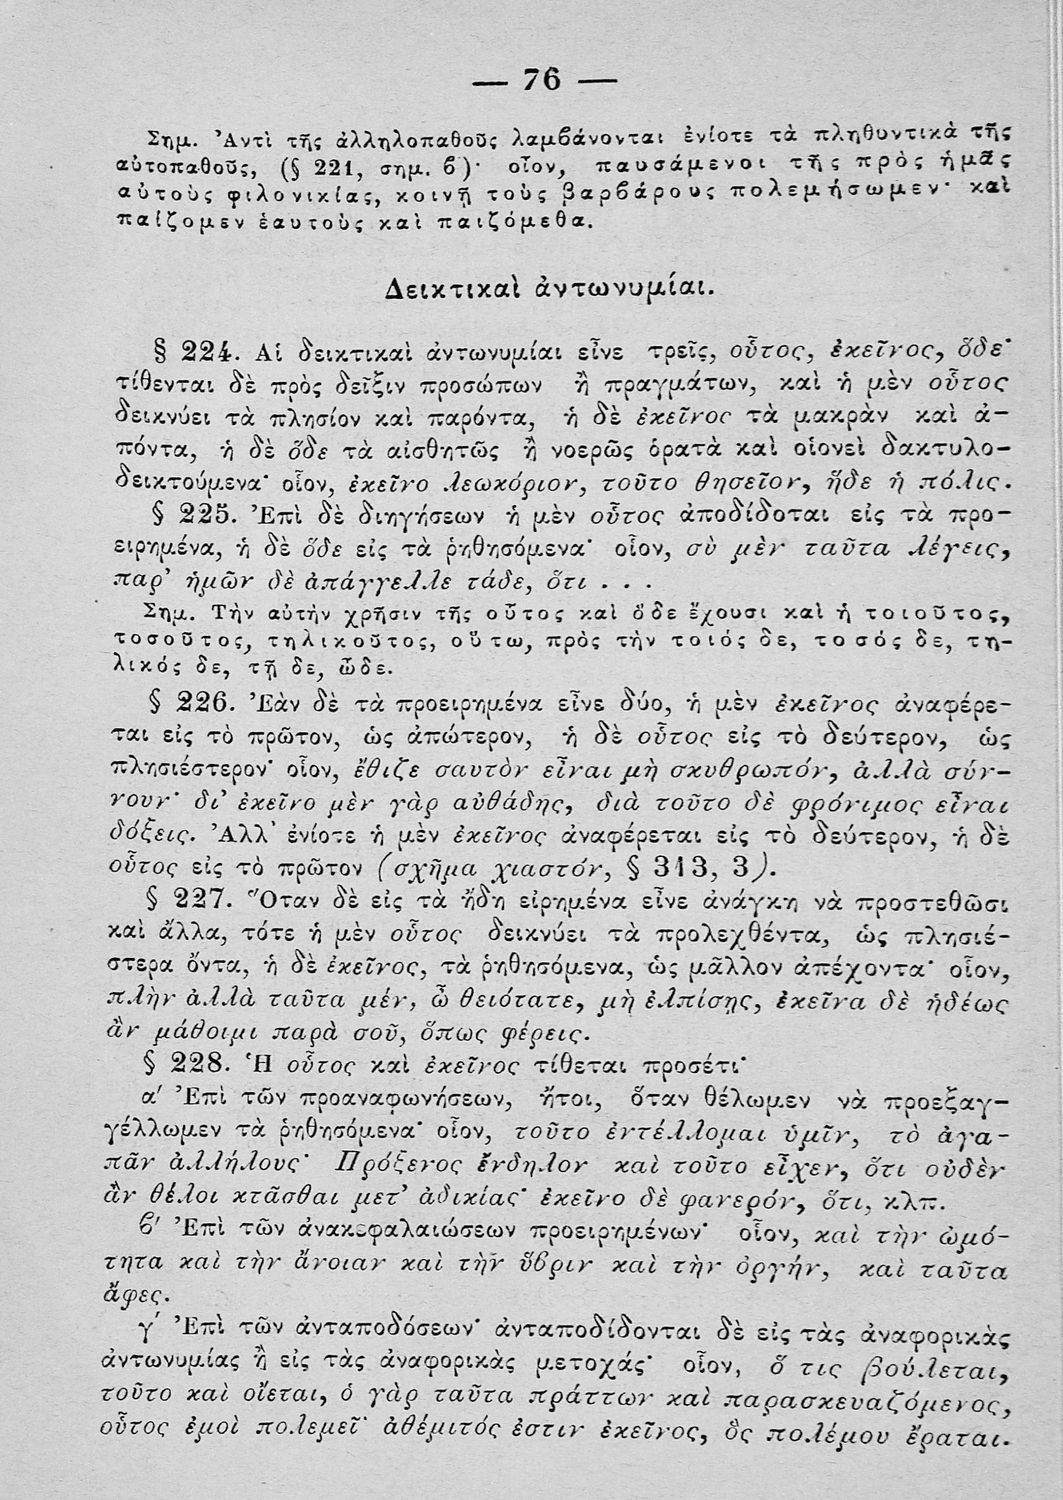 — 76 —
Σημ. Ἀντὶ τῆς ἀλληλοπαθοῦς λαμβάνονται ἐνίοτε τὰ πληθυντικὰ τῆς
αὐτοπαθοῦς, (§ 221, σημ. β)· οἷον, παυσάμενοι τῆς πρὸς ἡμᾶς
αὐτοὺς φιλονικίας, κοινῇ τοὺς βαρβάρους πολεμήσωμεν· καὶ
παίζομεν ἑαυτοὺς καὶ παιζόμεθα.
Δεικτικαὶ ἀντωνυμίαι.
§ 224. Αἱ δεικτικαὶ ἀντωνυμίαι εἶνε τρεῖς, οὗτος, ἐκεῖνος, ὅδε·
τίθενται δὲ πρὸς δεῖξιν προσώπων ἢ πραγμάτων, καὶ ἡ μὲν οὗτος
δεικνύει τὰ πλησίον καὶ παρόντα, ἡ δὲ ἐκεῖνος τὰ μακρὰν καὶ ἀ-
πόντα, ἡ δὲ ὅδε τὰ αἰσθητῶς ἢ νοερῶς ὁρατὰ καὶ οἱονεὶ δακτυλο-
δεικτούμενα· οἷον, ἐκεῖνο λεωκόριον, τοῦτο θησεῖον, ἥδε ἡ πόλις.
§ 225. Ἐπὶ δὲ διηγήσεων ἡ μὲν οὗτος ἀποδίδοται εἰς τὰ προ-
ειρημένα, ἡ δὲ ὅδε εἰς τὰ ῥηθησόμενα· οἷον, σὺ μὲν ταῦτα λέγεις,
παρ’ ἡμῶν δὲ ἀπάγγελλε τάδε, ὅτι . . .
Σημ. Τὴν αὐτὴν χρῆσιν τῆς οὗτος καὶ ὅδε ἔχουσι καὶ ἡ τοιοῦτος,
τοσοῦτος, τηλικοῦτος, οὕτω, πρὸς τὴν τοιός δε, τοσός δε, τη-
λικός δε, τῇ δε, ὧδε.
§ 226. Ἐὰν δὲ τὰ προειρημένα εἶνε δύο, ἡ μὲν ἐκεῖνος ἀναφέρε-
ται εἰς τὸ πρῶτον, ὡς ἀπώτερον, ἡ δὲ οὗτος εἰς τὸ δεύτερον, ὡς
πλησιέστερον· οἷον, ἔθιζε σαυτὸν εἶναι μὴ σκυθρωπόν, ἀλλὰ σύν-
νουν· δι’ ἐκεῖνο μὲν γὰρ αὐθάδης, διὰ τοῦτο δὲ φρόνιμος εἶναι
δόξεις. Ἀλλ’ ἐνίοτε ἡ μὲν ἐκεῖνος ἀναφέρεται εἰς τὸ δεύτερον, ἡ δὲ
οὗτος εἰς τὸ πρῶτον (σχῆμα χιαστόν, § 313, 3).
§ 227. Ὅταν δὲ εἰς τὰ ἤδη εἰρημένα εἶνε ἀνάγκη νὰ προστεθῶσι
καὶ ἄλλα, τότε ἡ μὲν οὗτος δεικνύει τὰ προλεχθέντα, ὡς πλησιέ-
στερα ὄντα, ἡ δὲ ἐκεῖνος, τὰ ῥηθησόμενα, ὡς μᾶλλον ἀπέχοντα· οἷον,
πλὴν ἀλλὰ ταῦτα μέν, ὦ θειότατε, μὴ ἐλπίσῃς, ἐκεῖνα δὲ ἡδέως
ἂν μάθοιμι παρὰ σοῦ, ὅπως φέρεις.
§ 228. Ἡ οὗτος καὶ ἐκεῖνος τίθεται προσέτι·
α′ Ἐπὶ τῶν προαναφωνήσεων, ἤτοι, ὅταν θέλωμεν νὰ προεξαγ-
γέλλωμεν τὰ ῥηθησόμενα· οἷον, τοῦτο ἐντέλλομαι ὑμῖν, τὸ ἀγα-
πᾶν ἀλλήλους· Πρόξενος ἔνδηλον καὶ τοῦτο εἶχεν, ὅτι οὐδὲν
ἂν θέλοι κτᾶσθαι μετ’ ἀδικίας· ἐκεῖνο δὲ φανερόν, ὅτι, κλπ.
β′ Ἐπὶ τῶν ἀνακεφαλαιώσεων προειρημένων· οἷον, καὶ τὴν ὠμό-
τητα καὶ τὴν ἄνοιαν καὶ τὴν ὕβριν καὶ τὴν ὀργήν, καὶ ταῦτα
ἄφες.
γ′ Ἐπὶ τῶν ἀνταποδόσεων· ἀνταποδίδονται δὲ εἰς τὰς ἀναφορικὰς
ἀντωνυμίας ἢ εἰς τὰς ἀναφορικὰς μετοχάς· οἷον, ὅ τις βούλεται,
τοῦτο καὶ οἴεται, ὁ γὰρ ταῦτα πράττων καὶ παρασκευαζόμενος,
οὗτος ἐμοὶ πολεμεῖ· ἀθέμιτός ἐστιν ἐκεῖνος, ὃς πολέμου ἔραται.